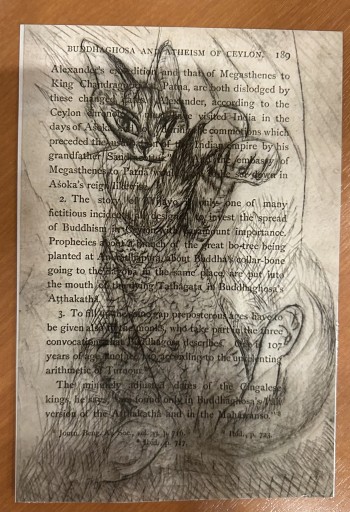 BUDDHAGHOSA AND ATHEISM OF CEYLON. 189
Alexander's expedition and that of Megasthenes to
King Chandragupta at Patna, are both dislodged by
these changes. Alexander, according to the
Ceylon have visited India in the
days of Aśoka during the commotions which
preceded the of the Indian empire by his
grandfather the embassy of
Megasthenes to Patna down in
Aśoka's reign likewise.
2. The story of Wijayo is only one of many
fictitious incidents designed to invest the spread
of Buddhism in Ceylon with paramount importance.
Prophecies about a branch of the great bo-tree being
planted at Anuradhapura, about Buddha's collar-bone
going to the in the same place, are put into
the mouth of the dying Tathāgata in Buddhaghosa's
Aṭṭhakathā.
3. To fill up the gap preposterous ages have to
be given also to the monks, who take part in the three
convocations Buddhaghosa describes. One is 107
years of age, another according to the
arithmetic of Turnour.
The minutely adjusted dates of the Cingalese
kings, he says, "are found only in Buddhaghosa's Pāli
version of the Aṭṭhakathā and in the Mahāwanso."
* Journ. Beng. As. Soc., vol. Ibid., p. 723.
Ibid., p.